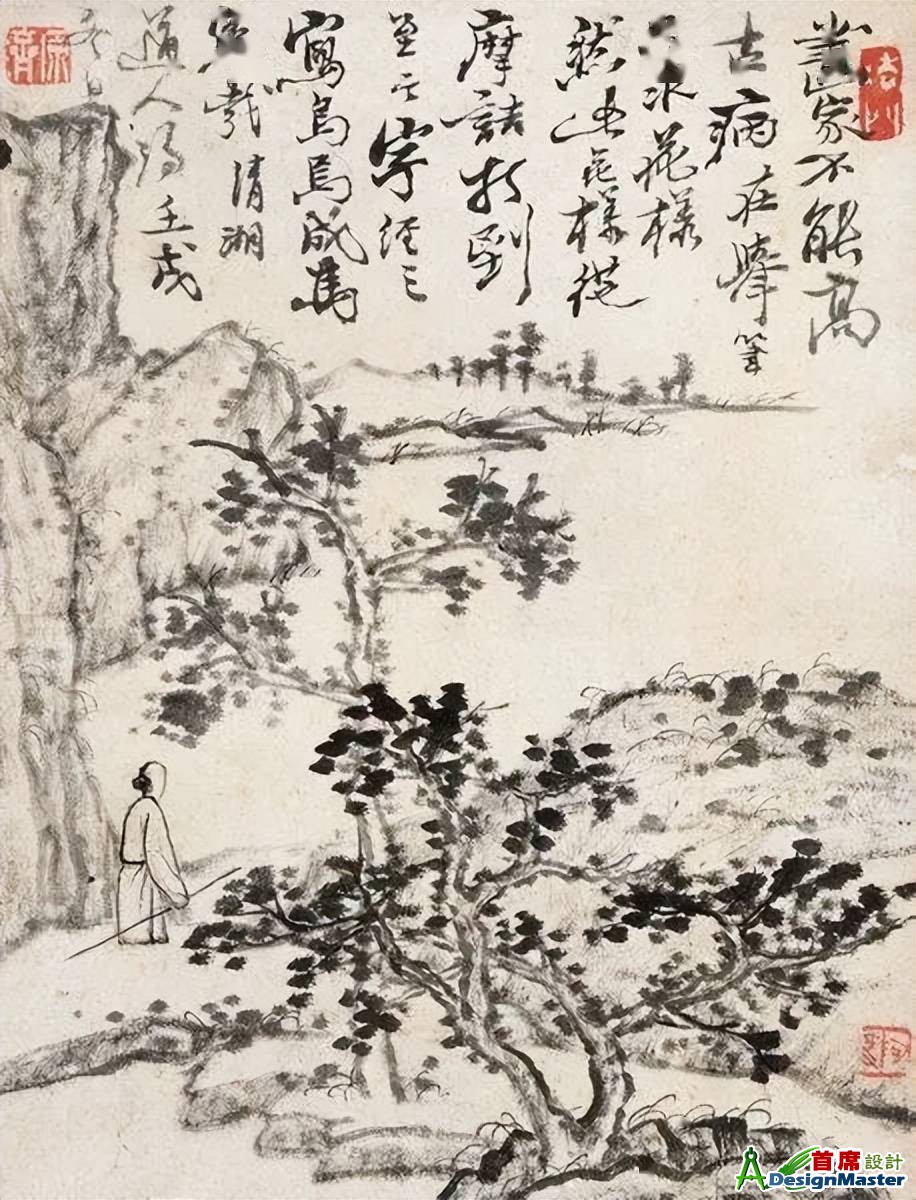 畫家不能高
古病在舉筆
求花樣
然此花樣從
摩詰打到
至今字經三
寫烏焉成馬
哉清湘
道人濟壬戌
冬日
首席設計
ADesignMaster